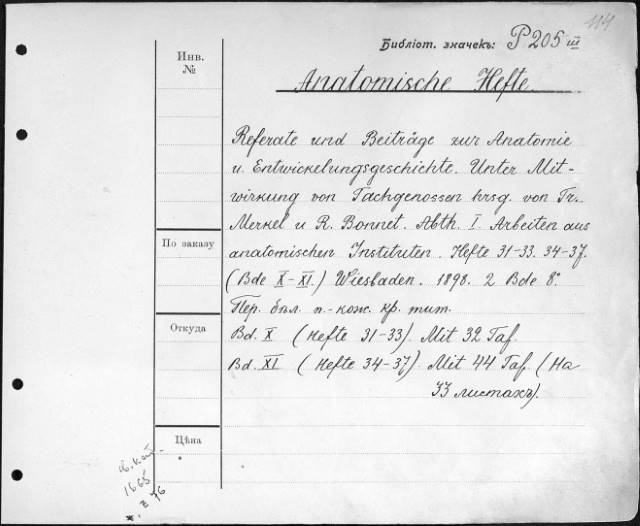 114
Библіот. значекъ: P 205 III
Инв.
№
Anatomische Hefte.
Referate und Beiträge zur Anatomie
u. Entwickelungsgeschichte. Unter Mit-
wirkung von Fachgenossen hrsg. von Fr.
Merkel u R. Bonnet. Abth. I. Arbeiten aus
По заказу
anatomischen Instituten. Hefte 31-33. 34-37.
(Bde X-XI.) Wiesbaden. 1898. 2 Bde 8°.
Пер. бѣл. п.-кож. кр. тит.
Откуда
Bd. X (Hefte 31-33). Mit 32 Taf.
Bd. XI (Hefte 34-37). Mit 44 Taf. (На
33 листахъ).
Цѣна
1665